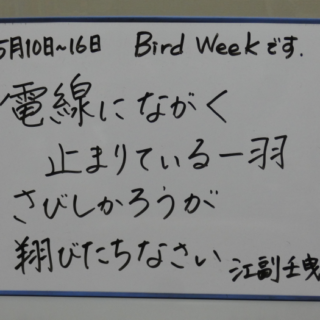 5月10日~16日 Bird Weekです.
電線にながく
止まりている一羽
さびしかろうが
翔びたちなさい 江副壬曳